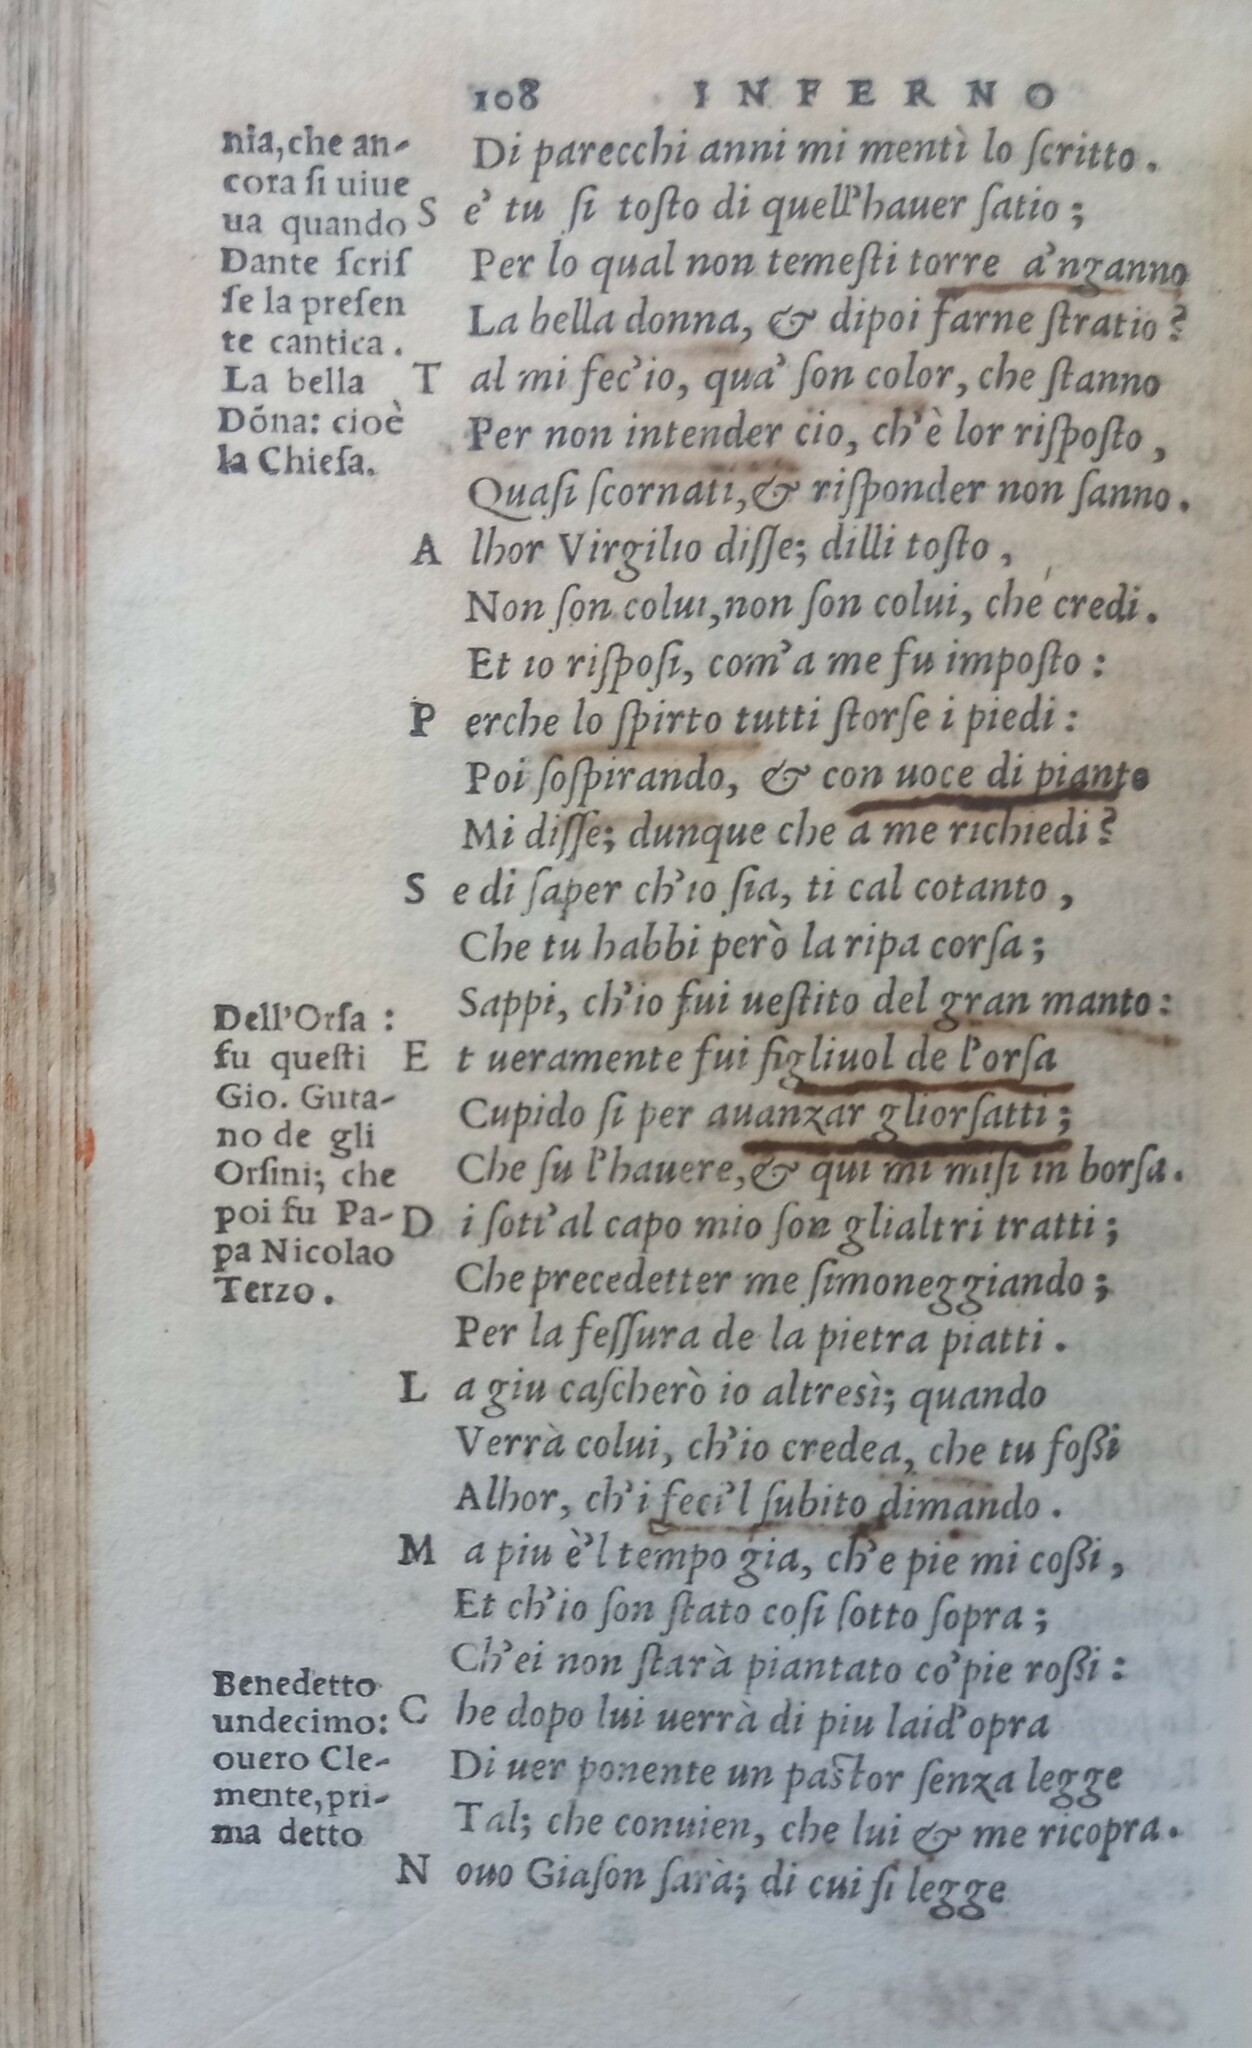 108 INFERNO
nia, che an-
cora si uiue
ua quando
Dante scris
se la presen
te cantica.
La bella
Dóna: cioè
la Chiesa.
Di parecchi anni mi mentì lo scritto.
Se' tu si tosto di quell'hauer satio;
Per lo qual non temesti torre a'nganno
La bella donna, & dipoi farne stratio?
Tal mi fec'io, qua' son color, che stanno
Per non intender cio, ch'è lor risposto,
Quasi scornati, & risponder non sanno.
Alhor Virgilio disse; dilli tosto,
Non son colui, non son colui, che credi.
Et io risposi, com'a me fu imposto:
Perche lo spirto tutti storse i piedi:
Poi sospirando, & con uoce di pianto
Mi disse; dunque che a me richiedi?
Se di saper ch'io sia, ti cal cotanto,
Che tu habbi però la ripa corsa;
Sappi, ch'io fui uestito del gran manto:
Dell'Orsa:
fu questi
Gio. Guta-
no de gli
Orsini; che
poi fu Pa-
pa Nicolao
Terzo.
Et ueramente fui figliuol de l'orsa
Cupido si per auanzar gliorsatti;
Che su l'hauere, & qui mi misi in borsa.
Di sott'al capo mio son glialtri tratti;
Che precedetter me simoneggiando;
Per la fessura de la pietra piatti.
La giu cascherò io altresì; quando
Verrà colui, ch'io credea, che tu fossi
Alhor, ch'i feci'l subito dimando.
Ma piu è'l tempo gia, ch'e pie mi cossi,
Et ch'io son stato cosi sotto sopra;
Ch'ei non starà piantato co'pie rossi:
Benedetto
undecimo:
ouero Cle-
mente, pri-
ma detto
Che dopo lui uerrà di piu laid'opra
Di uer ponente un pastor senza legge
Tal; che conuien, che lui & me ricopra.
Nouo Giason sarà; di cui si legge